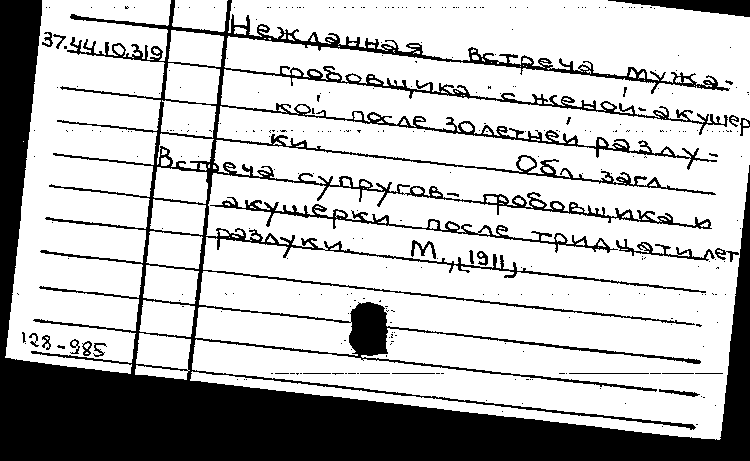 Нежданная встреча мужа-
37.44.10.319
гробовщика с женой-акушер
кой после 30летней разлу-
ки. Обл. загл.
Встреча супругов- гробовщика и
акушерки после тридцати лет
разлуки. М., [1911].
128-985